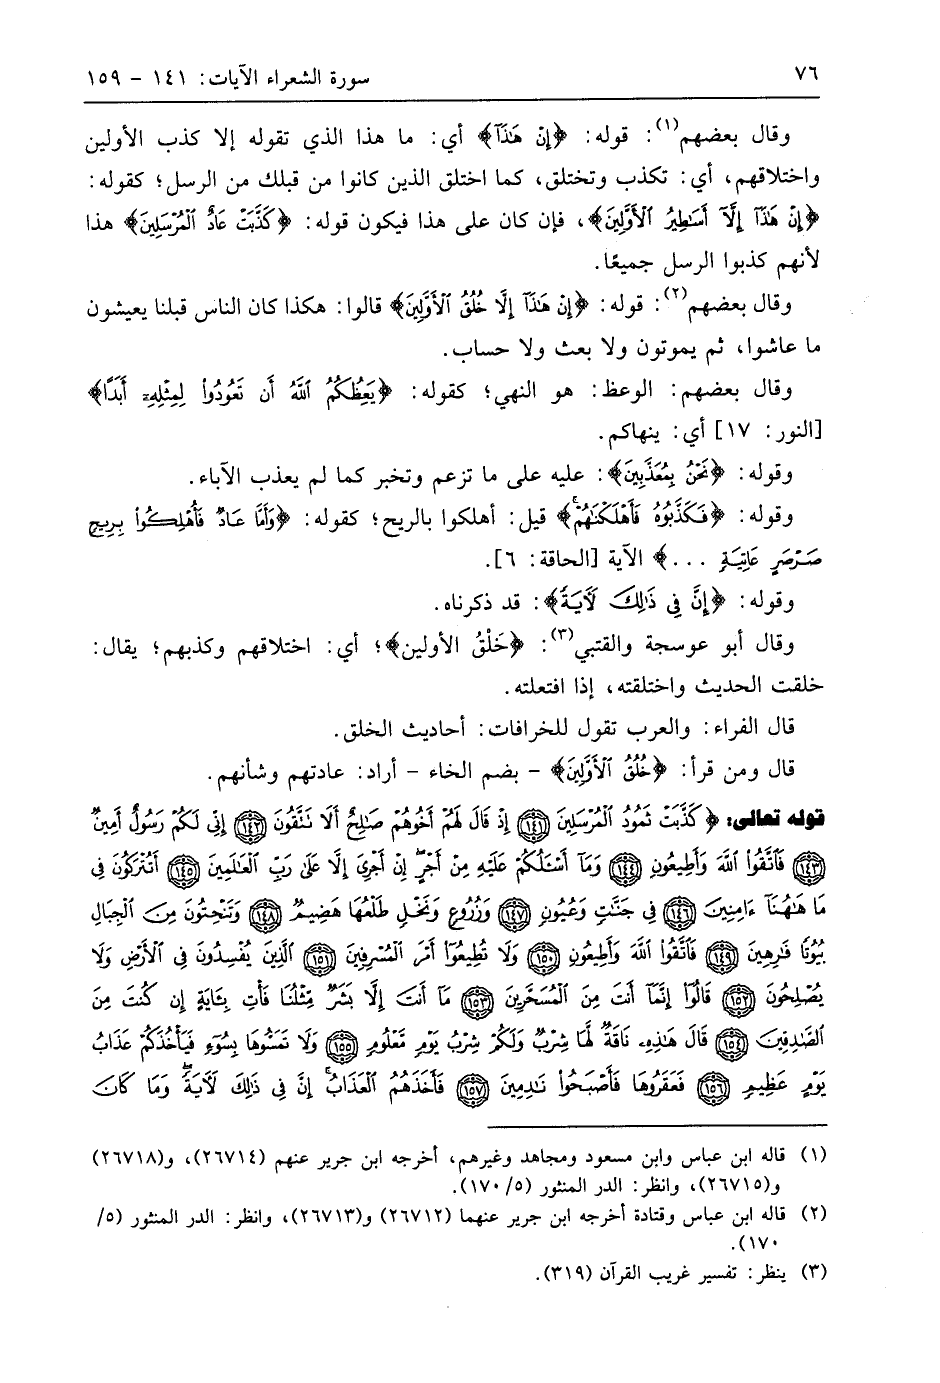 ٧٦
سورة الشعراء الآيات: ١٤١ - ١٥٩
وقال بعضهم(١): قوله: ﴿إِنْ هَٰذَآ﴾ أي: ما هذا الذي تقوله إلا كذب الأولين
واختلاقهم، أي: تكذب وتختلق، كما اختلق الذين كانوا من قبلك من الرسل؛ كقوله:
﴿إِنْ هَٰذَآ إِلَّآ أَسَٰطِيرُ ٱلْأَوَّلِينَ﴾، فإن كان على هذا فيكون قوله: ﴿كَذَّبَتْ عَادٌ ٱلْمُرْسَلِينَ﴾ هذا
لأنهم كذبوا الرسل جميعًا.
وقال بعضهم(٢): قوله: ﴿إِنْ هَٰذَآ إِلَّا خُلُقُ ٱلْأَوَّلِينَ﴾ قالوا: هكذا كان الناس قبلنا يعيشون
ما عاشوا، ثم يموتون ولا بعث ولا حساب.
وقال بعضهم: الوعظ: هو النهي؛ كقوله: ﴿يَعِظُكُمُ ٱللَّهُ أَن تَعُودُوا۟ لِمِثْلِهِۦٓ أَبَدًا﴾
[النور: ١٧] أي: ينهاكم.
وقوله: ﴿نَحْنُ بِمُعَذَّبِينَ﴾: عليه على ما تزعم وتخبر كما لم يعذب الآباء.
وقوله: ﴿فَكَذَّبُوهُ فَأَهْلَكْنَٰهُمْ﴾ قيل: أهلكوا بالريح؛ كقوله: ﴿وَأَمَّا عَادٌ فَأُهْلِكُوا۟ بِرِيحٍ
صَرْصَرٍ عَاتِيَةٍ ...﴾ الآية [الحاقة: ٦].
وقوله: ﴿إِنَّ فِى ذَٰلِكَ لَأٓيَةً﴾: قد ذكرناه.
وقال أبو عوسجة والقتبي(٣): ﴿خَلْقُ الأولين﴾؛ أي: اختلاقهم وكذبهم؛ يقال:
خلقت الحديث واختلقته، إذا افتعلته.
قال الفراء: والعرب تقول للخرافات: أحاديث الخلق.
قال ومن قرأ: ﴿خُلُقُ ٱلْأَوَّلِينَ﴾ - بضم الخاء - أراد: عادتهم وشأنهم.
قوله تعالى: ﴿كَذَّبَتْ ثَمُودُ ٱلْمُرْسَلِينَ ١٤١ إِذْ قَالَ لَهُمْ أَخُوهُمْ صَٰلِحٌ أَلَا تَتَّقُونَ ١٤٢ إِنِّى لَكُمْ رَسُولٌ أَمِينٌ
١٤٣ فَٱتَّقُوا۟ ٱللَّهَ وَأَطِيعُونِ ١٤٤ وَمَآ أَسْـَٔلُكُمْ عَلَيْهِ مِنْ أَجْرٍ إِنْ أَجْرِىَ إِلَّا عَلَىٰ رَبِّ ٱلْعَٰلَمِينَ ١٤٥ أَتُتْرَكُونَ فِى
مَا هَٰهُنَآ ءَامِنِينَ ١٤٦ فِى جَنَّٰتٍ وَعُيُونٍ ١٤٧ وَزُرُوعٍ وَنَخْلٍ طَلْعُهَا هَضِيمٌ ١٤٨ وَتَنْحِتُونَ مِنَ ٱلْجِبَالِ
بُيُوتًا فَٰرِهِينَ ١٤٩ فَٱتَّقُوا۟ ٱللَّهَ وَأَطِيعُونِ ١٥٠ وَلَا تُطِيعُوٓا۟ أَمْرَ ٱلْمُسْرِفِينَ ١٥١ ٱلَّذِينَ يُفْسِدُونَ فِى ٱلْأَرْضِ وَلَا
يُصْلِحُونَ ١٥٢ قَالُوٓا۟ إِنَّمَآ أَنتَ مِنَ ٱلْمُسَحَّرِينَ ١٥٣ مَآ أَنتَ إِلَّا بَشَرٌ مِّثْلُنَا فَأْتِ بِـَٔايَةٍ إِن كُنتَ مِنَ
ٱلصَّٰدِقِينَ ١٥٤ قَالَ هَٰذِهِۦ نَاقَةٌ لَّهَا شِرْبٌ وَلَكُمْ شِرْبُ يَوْمٍ مَّعْلُومٍ ١٥٥ وَلَا تَمَسُّوهَا بِسُوٓءٍ فَيَأْخُذَكُمْ عَذَابُ
يَوْمٍ عَظِيمٍ ١٥٦ فَعَقَرُوهَا فَأَصْبَحُوا۟ نَٰدِمِينَ ١٥٧ فَأَخَذَهُمُ ٱلْعَذَابُ إِنَّ فِى ذَٰلِكَ لَأٓيَةً وَمَا كَانَ
(١) قاله ابن عباس وابن مسعود ومجاهد وغيرهم، أخرجه ابن جرير عنهم (٢٦٧١٤)، و(٢٦٧١٨)
و(٢٦٧١٥)، وانظر: الدر المنثور (٥/ ١٧٠).
(٢) قاله ابن عباس وقتادة أخرجه ابن جرير عنهما (٢٦٧١٢) و(٢٦٧١٣)، وانظر: الدر المنثور (٥/
١٧٠).
(٣) ينظر: تفسير غريب القرآن (٣١٩).